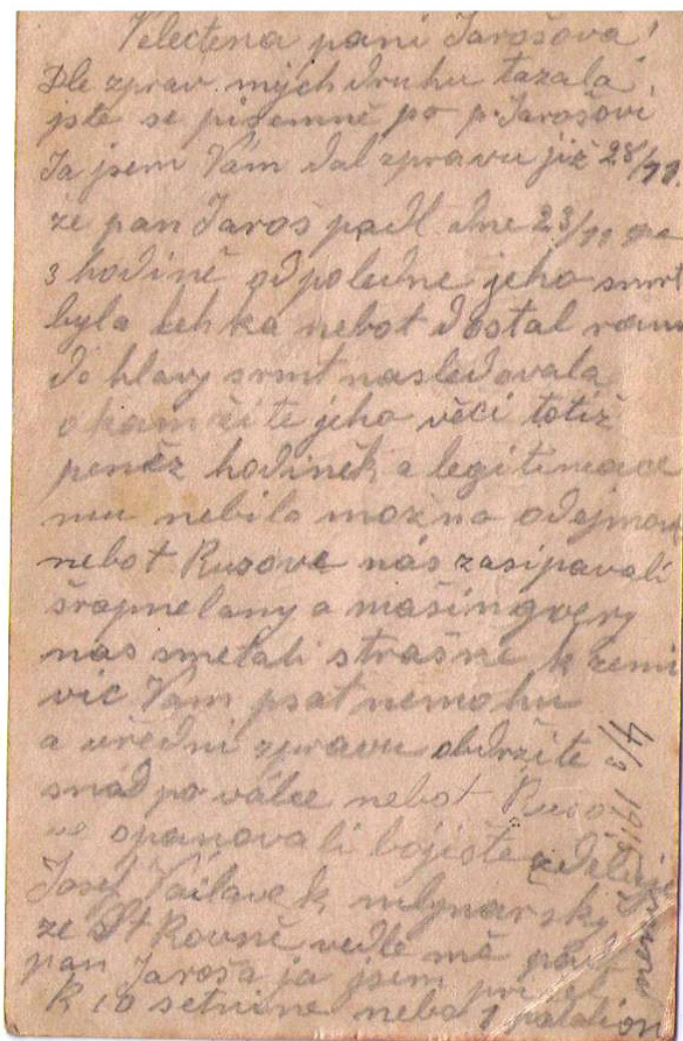 Velectena pani Jarošova!
Dle zprav mých druhu tazala
jste se pisemně po p. Jarošovi
Ja jsem Vám dal zpravu již 28/11.
že pan Jaroš padl dne 23/11
3 hodině odpoledne jeho smrt
byla lehka nebot dostal ranu
do hlavy srmt nasledovala
okamžite jeho věci totiž
peněz hodinek a legitimace
mu nebilo možno odejmout
nebot Rusove nás zasipavali
šrapnelamy a mašingvery
nas smetali strašne k zemi
vic Vam psat nemohu
a uředni zpravu obdržite
snad po válce nebot Ruso
ve opanovali bojište
Josef mlynařský
ze St Rovně vedle mě padl
pan Jaroš a ja jsem přišel
k 10 setnine nebo 1 batalion
4/3 1915